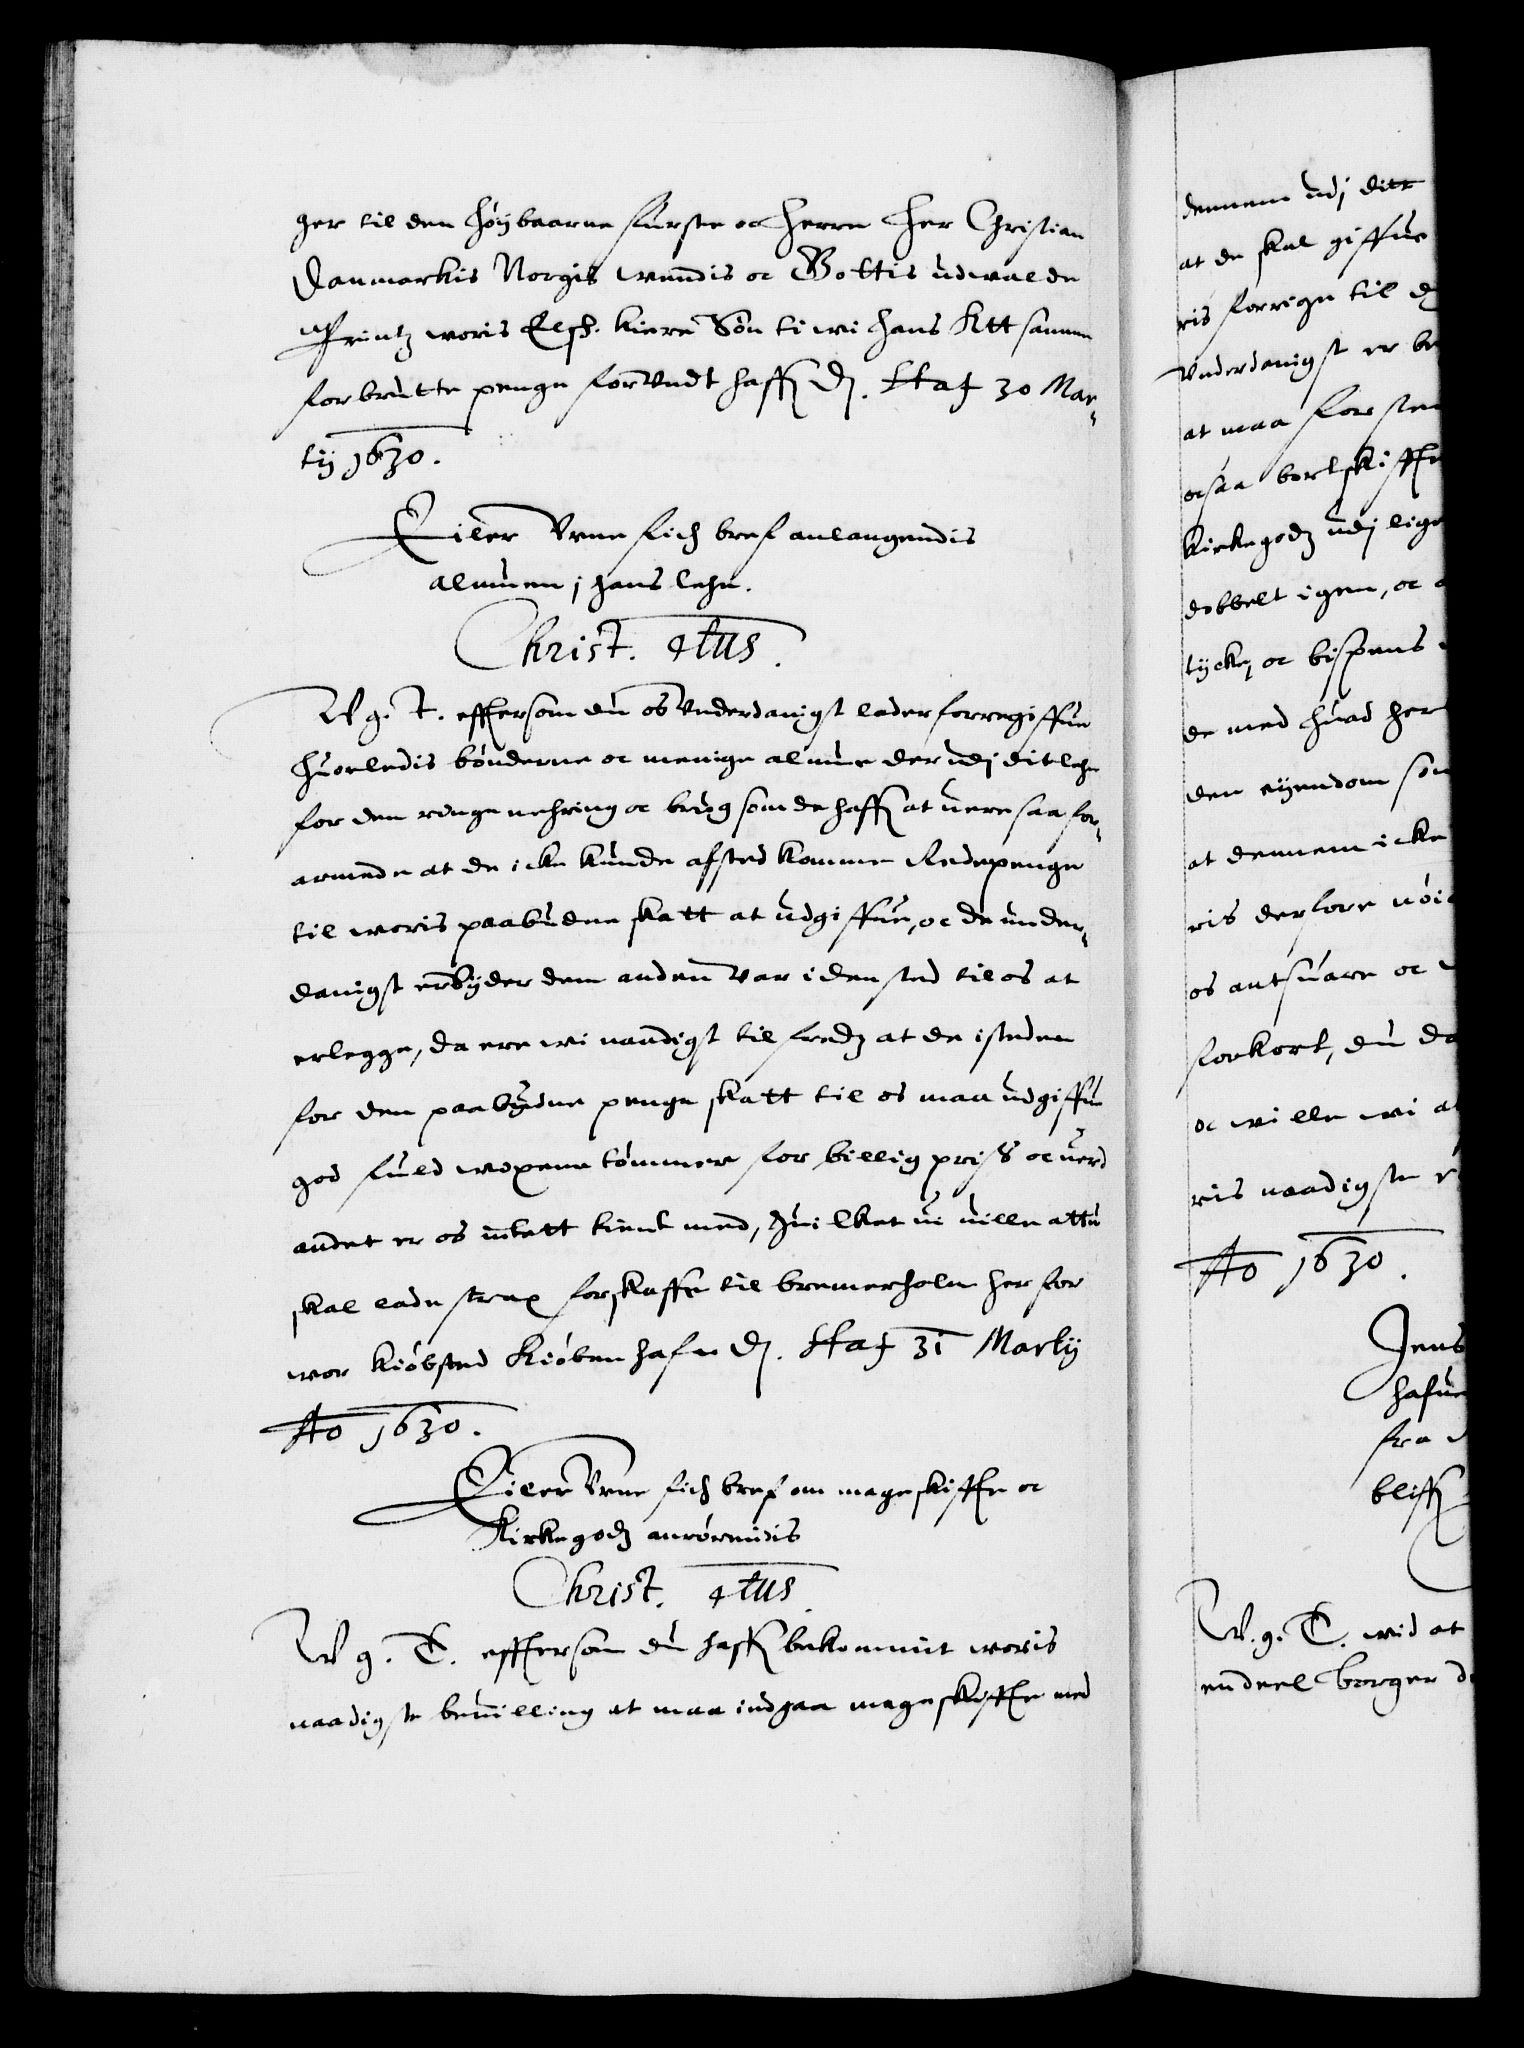 ger til den høybaarne Furste oc Herre Her Christian
Danmarkis Norgis Wendis oc Gottis udwalde
Printz woris Elsk. kiere Søn ti wi hans Ktt samme
forbrutte penge forundt haffr Dj. Haf 30 Mar-
tij 1630.
Eiler Vrne fich bref anlangendis
almuen i hans lehn.
Christ. 4tus.
W g. T. effterson du os underdanigst lader forregiffue
huorledis bønderne oc menige almue der udj dit lehn
for den ringe nehring oc brug som de haffr at uere saa for-
armede at de icke kunde afsted komme Redepenge
til woris paabudne skatt at udgiffue, oc de under-
danigst erbyder dem anden var i den sted til os at
erlegge, da ere wi naadigst tilfredz at de isteden
for den paabudne penge skatt til os maa udgiffue
god fuld woxene tømmer for billig priss oc uerd
andet er os intett tient med, huilket ui uille at du
skal lade strax forskaffe til bremerholm her for
wor kiøbsted Kiøbenhafn Dj. Haf 31 Martij
Ao 1630.
Eiler Vrne fich bref om mageskiffte oc
Kirkegodz anrørendis
Christ. 4tus.
W g. T. effterson du haffr bekommit woris
naadigste beuilling at maa indgaa mageskiffte med
dennem udj ditt
at de skal giffue
ris forrige til
Underdanigst er be
at maa for sten
ocsaa bortskiffte
kirkegodz udj lige
dobbelt igen, oc
tycke, oc bispens
de med huad her
den eyendom som
at dennem icke
ris derfore
os antsuare oc
forkort, du da
oc wille wi at
ris naadigste
Ao 1630.
Jens
hafue
fra
bliffr
W. g. T. wid at
endeel borger